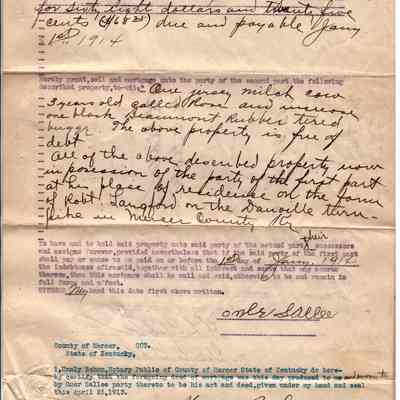 for sixty eight dollars and twenty five
cents ($68 25) due and payable Jany
1st 1914
hereby grant, sell and mortgage unto the party of the second part the following
described property, to-wit: One jersey milch cow
3 years old called Rose and increase
one black Beaumont Rubber tired
buggy. The above property is free of
debt
All of the above described property now
in possession of the party of the first part
at his place of residence on the farm
of Robt Langford on the Danville turn-
pike in Mercer County Ky
To have and to hold said property unto said party of the second part their successors
and assigns forever, provided nevertheless that if the said party of the first part
shall pay or cause to be paid on or before the 1st day of Jany, 191
the indebtness aforesaid, together with all interest and costs that may accrue
thereon, then this mortgage shall be null and void, otherwise to be and remain in
full force and effect.
WITNESS My hand this date first above written.
Sallee
County of Mercer, SCT.
State of Kentucky,
I, Notary Public of County of Mercer State of Kentucky do here-
by certify that the foregoing deed of mortgage was this day produced to me
by Omar Sallee party thereto to be his act and deed, given under my hand and seal
this April 21, 1913.